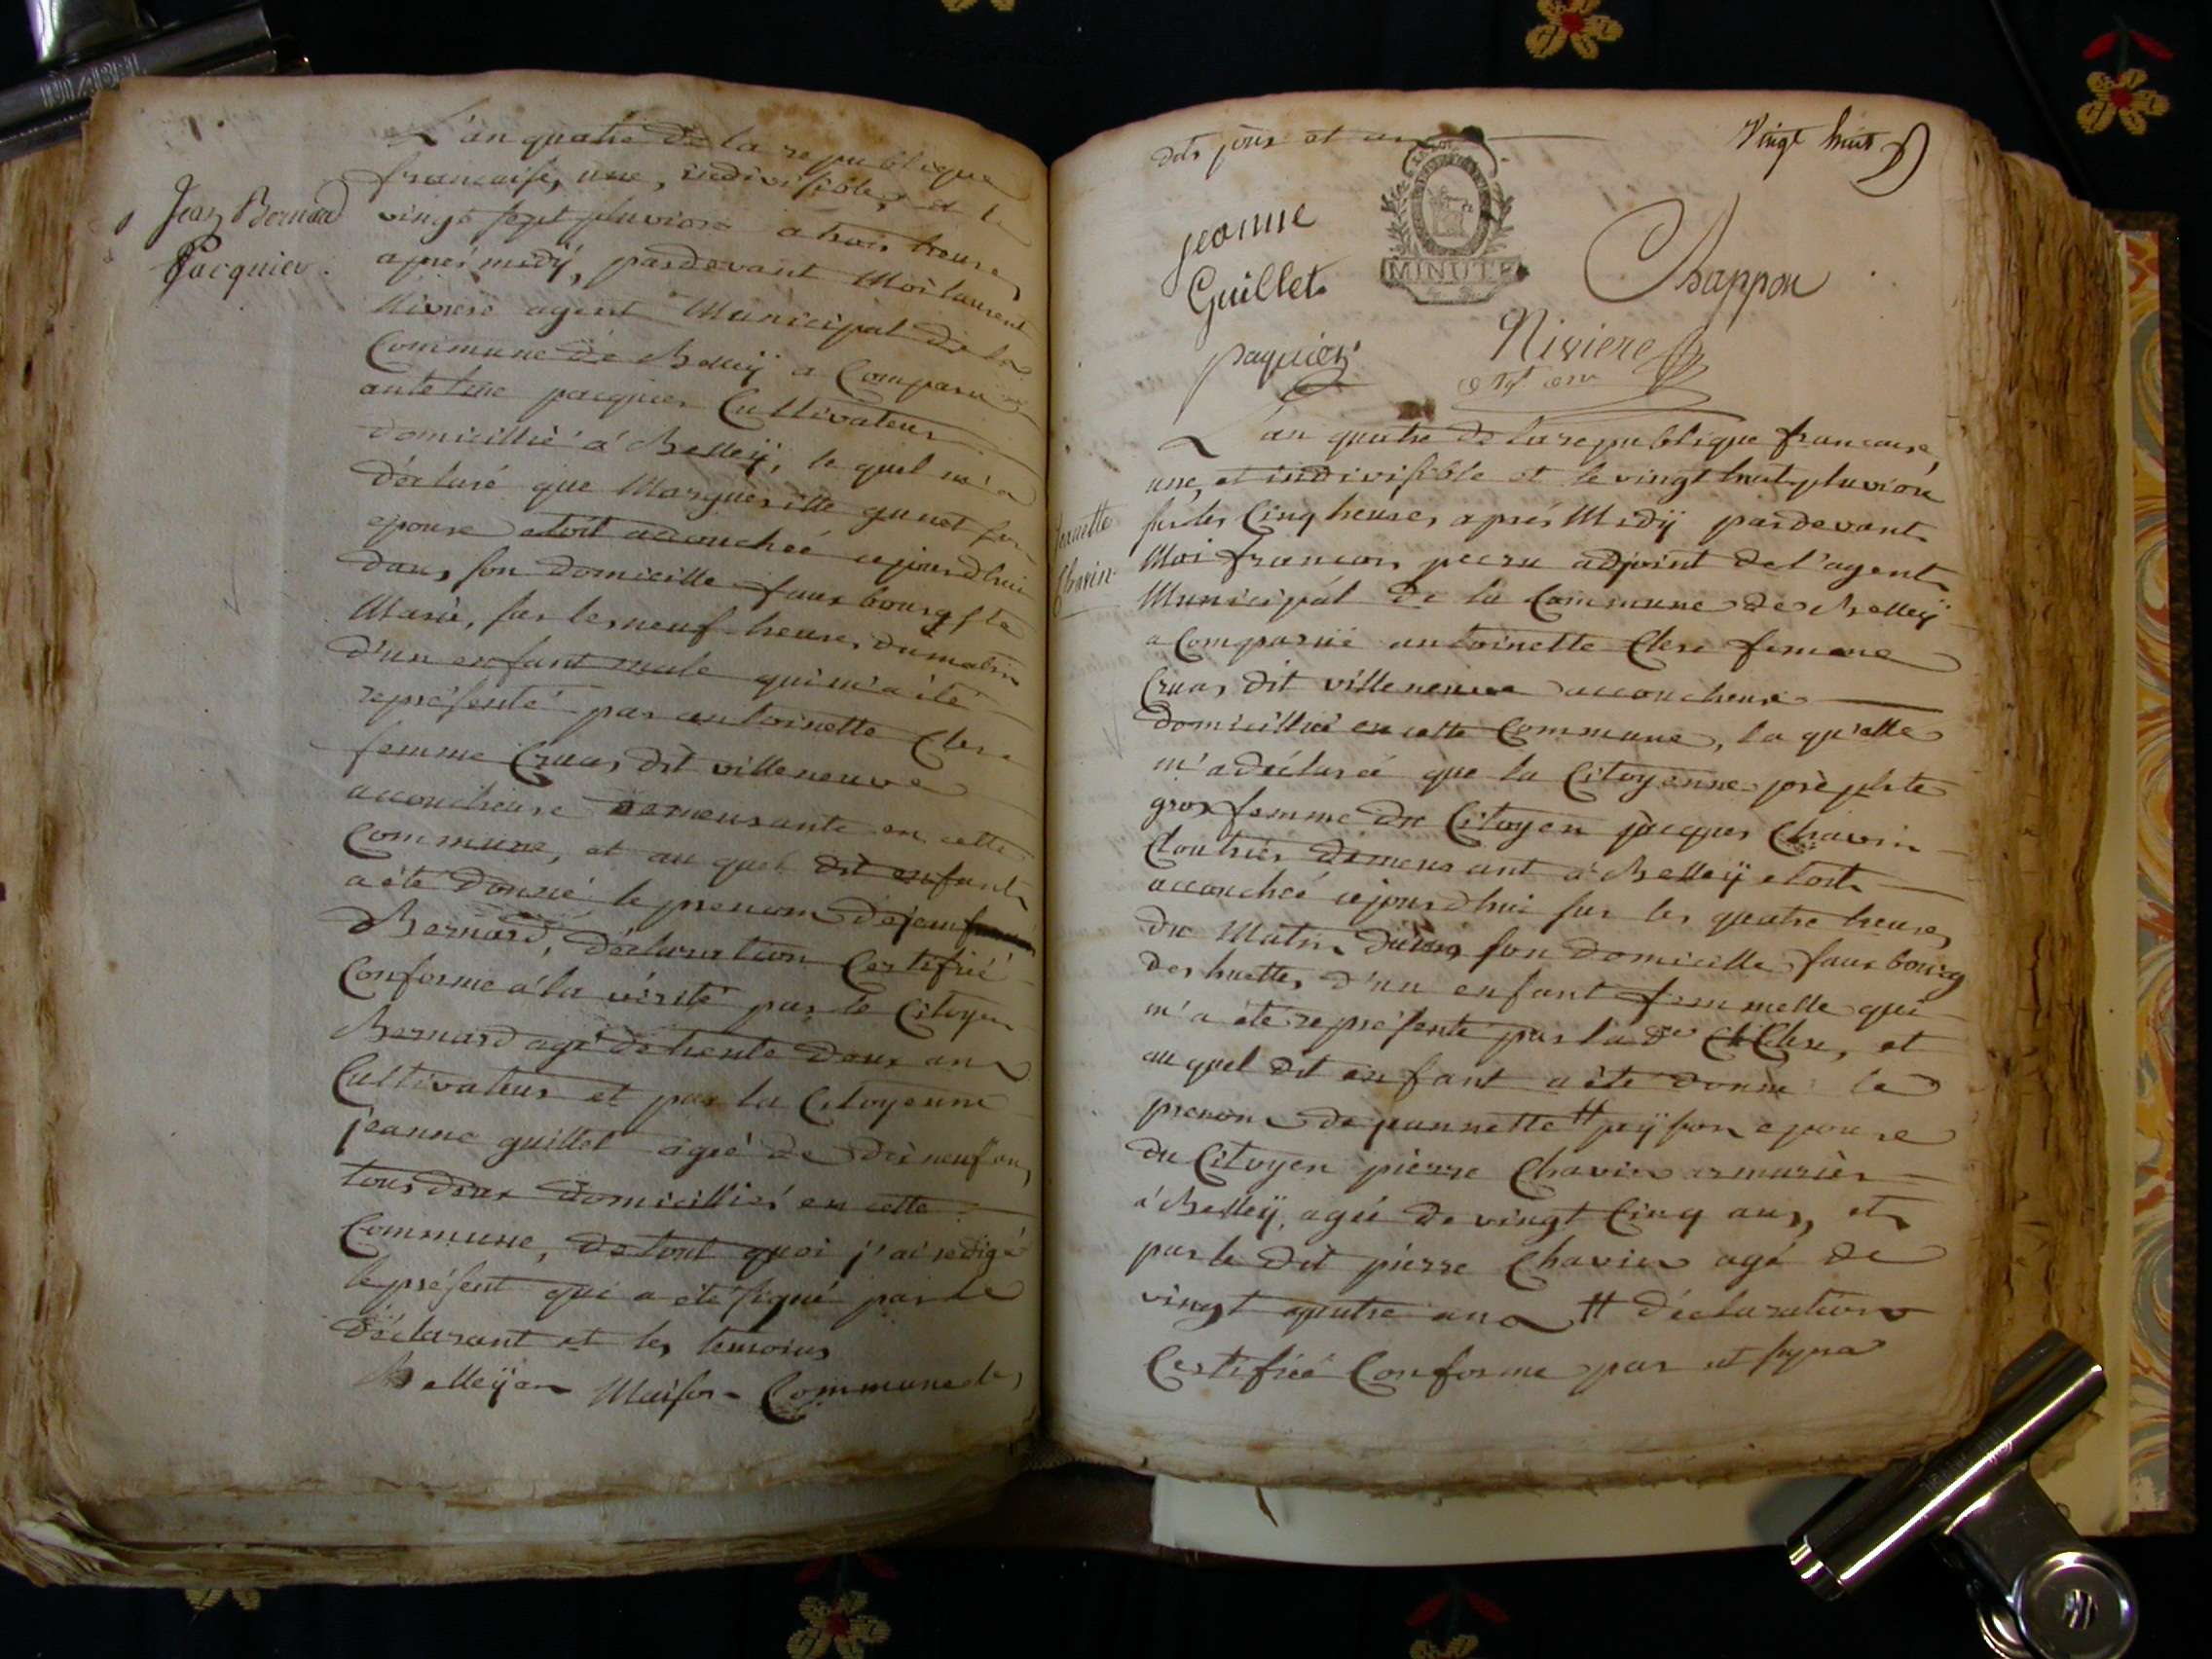 Jean Bernard
Pacquier.
L'an quatre de la republique
francaise, une, indivisible, et le
vingt sept pluviose a trois heures
aprés midÿ, pardevant Moi laurent
Niviere agent Municipal de la
Commune de Belleÿ a Comparu
antelme pacquier Cultivateur
domicillié à Belleÿ, le quel m'a
déclaré que Margueritte gunet son
epouse etoit accouchée cejourdhui
dans son domicille faux bourg ste
Marie, sur les neuf heures du matin
d'un enfant male qui m'a été
représenté par antoinette Clerc
femme Cruas dit villeneuve
accoucheuse demeurante en cette
Commune, et au quel dit enfant
a été donné le prenom de jean
Bernard, déclaration Certifié
Conforme à la vérité par le Citoyen
Bernard agé de trente deux ans
Cultivateur et par la Citoyenne
jeanne guillet agée de dix neuf ans
tous deux domicilliés en cette
Commune, de tout quoi j'ai redigé
le présent qui a été signé par le
déclarant et les temoins
Belleÿ en Maison Commune les
dits jour et an
Vingt huit
MINUTE
jeanne
Guillet
Chappon
paquier
Niviere
Jeannette
Chavin
L'an quatre de la republique francaise,
une, et indivisible et le vingt huit pluviose
sur les Cinq heures aprés Midÿ pardevant
Moi francois pecru adjoint de l'agent
Municipal de la Commune de Belleÿ
a Comparuë antoinette Clerc femme
Cruas dit villeneuve accoucheuse
domicilliée en cette Commune, la qu'elle
m'a déclaréé que la Citoyenne josèphte
gros femme du Citoyen jacques Chavin
Cloutrier demeurant à Belleÿ etoit
accouchéé cejourdhui sur les quatre heures
du Matin dans son domicille faux bourg
des huttes, d'un enfant femmelle qui
m'a été représenté par la de Clerc, et
au quel dit enfant a été donné le
prenom de jeannette # jaÿ son epouse
du Citoyen pierre Chavin armurier
à Belleÿ, agée de vingt Cinq ans, et
par le dit pierre Chavin agé de
vingt quatre ans # déclaration
Certifiéé Conforme par et signa